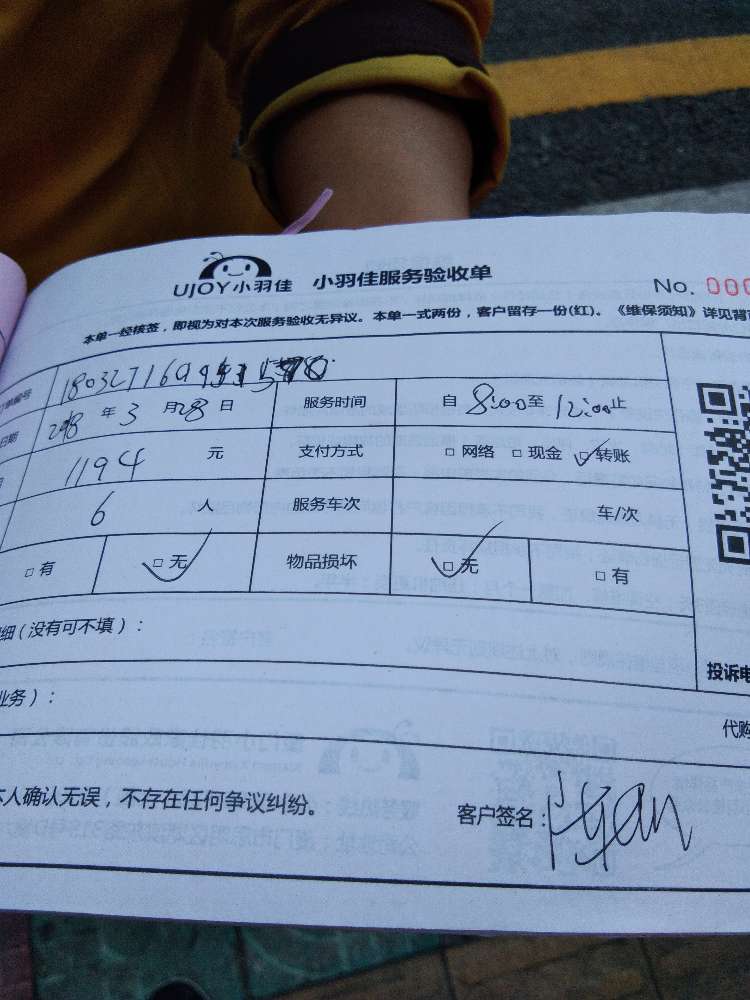 UJOY小羽佳 小羽佳服务验收单 No. 000
本单一经核签，即视为对本次服务验收无异议。本单一式两份，客户留存一份(红)。《维保须知》详见背
单编号
日期 2018 年 3 月 28 日 服务时间 自 8:00 至 12:00 止
1194 元 支付方式 □ 网络 □ 现金 □ 转账
6 人 服务车次 车/次
□ 有 □ 无 物品损坏 □ 无 □ 有
细 (没有可不填)：
投诉电
业务)：
代购
本人确认无误，不存在任何争议纠纷。 客户签名：